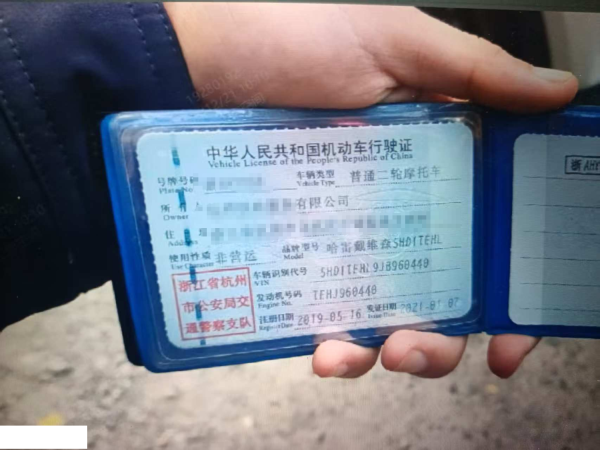 中华人民共和国机动车行驶证
Vehicle License of the People's Republic of China
号牌号码 车辆类型 普通二轮摩托车
Plate No. Vehicle Type
所有人 有限公司
Owner
住 址
Address
使用性质 非营运 品牌型号 哈雷戴维森5HD1TEHL
Use Character Model
浙江省杭州
市公安局交
通警察支队
车辆识别代号 5HD1TEHL9JB960440
VIN
发动机号码 TEHJ960440
Engine No.
注册日期 2019-05-16 发证日期 2021-01-07
Register Date Issue Date
浙AHY